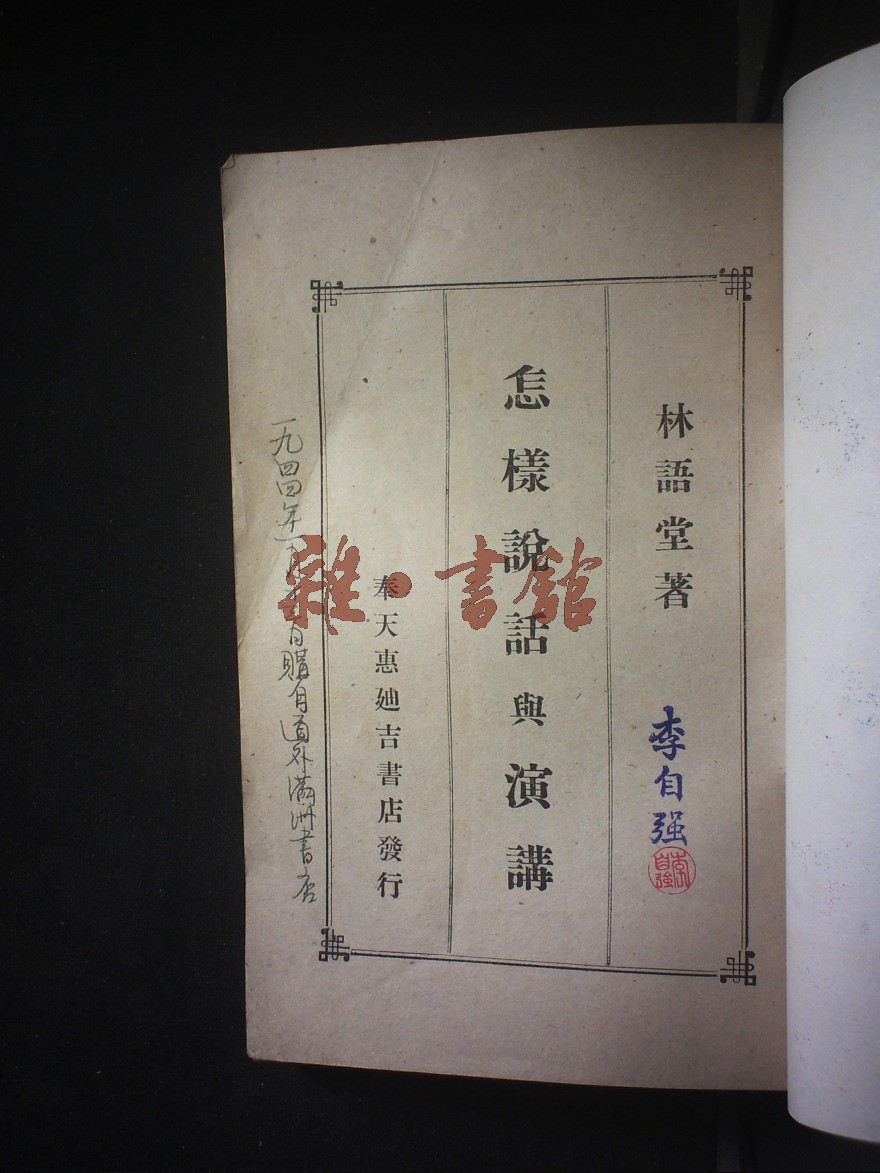 林語堂著
李自强
李自強
怎樣說話與演講
奉天惠廸吉書店發行
一九四四年一月 日購自道外滿洲書店
雜·書館